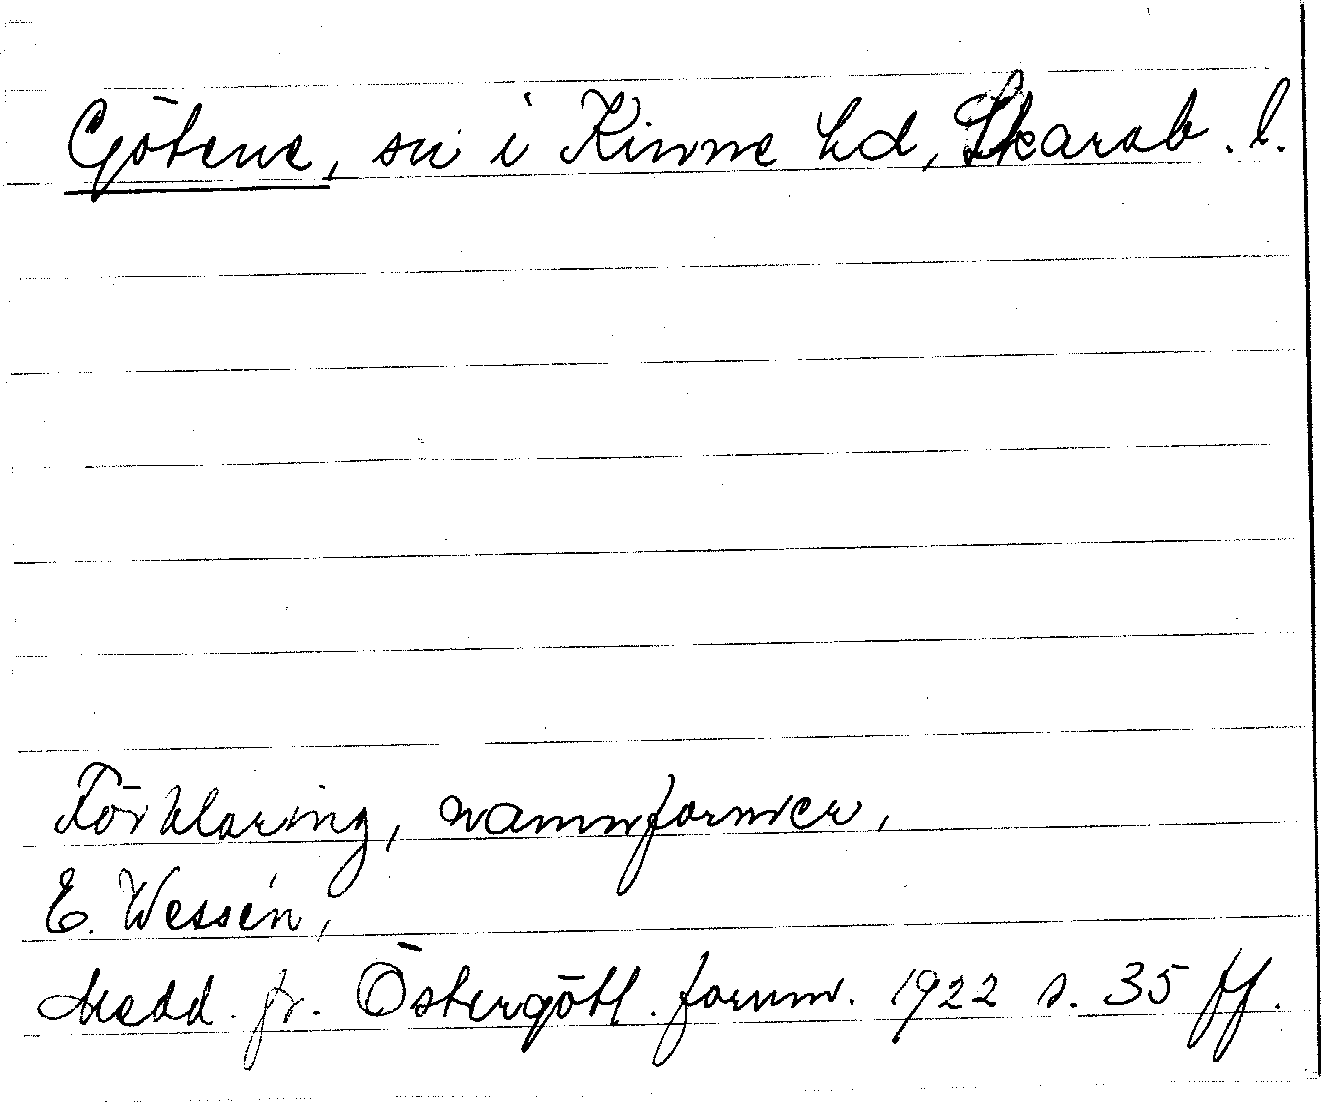 Götene, sn i Kinne hd, Skarab. l.
Förklaring, namnformer,
E. Wessén,
Medd. fr. Östergötl. fornm. 1922 s. 35 ff.